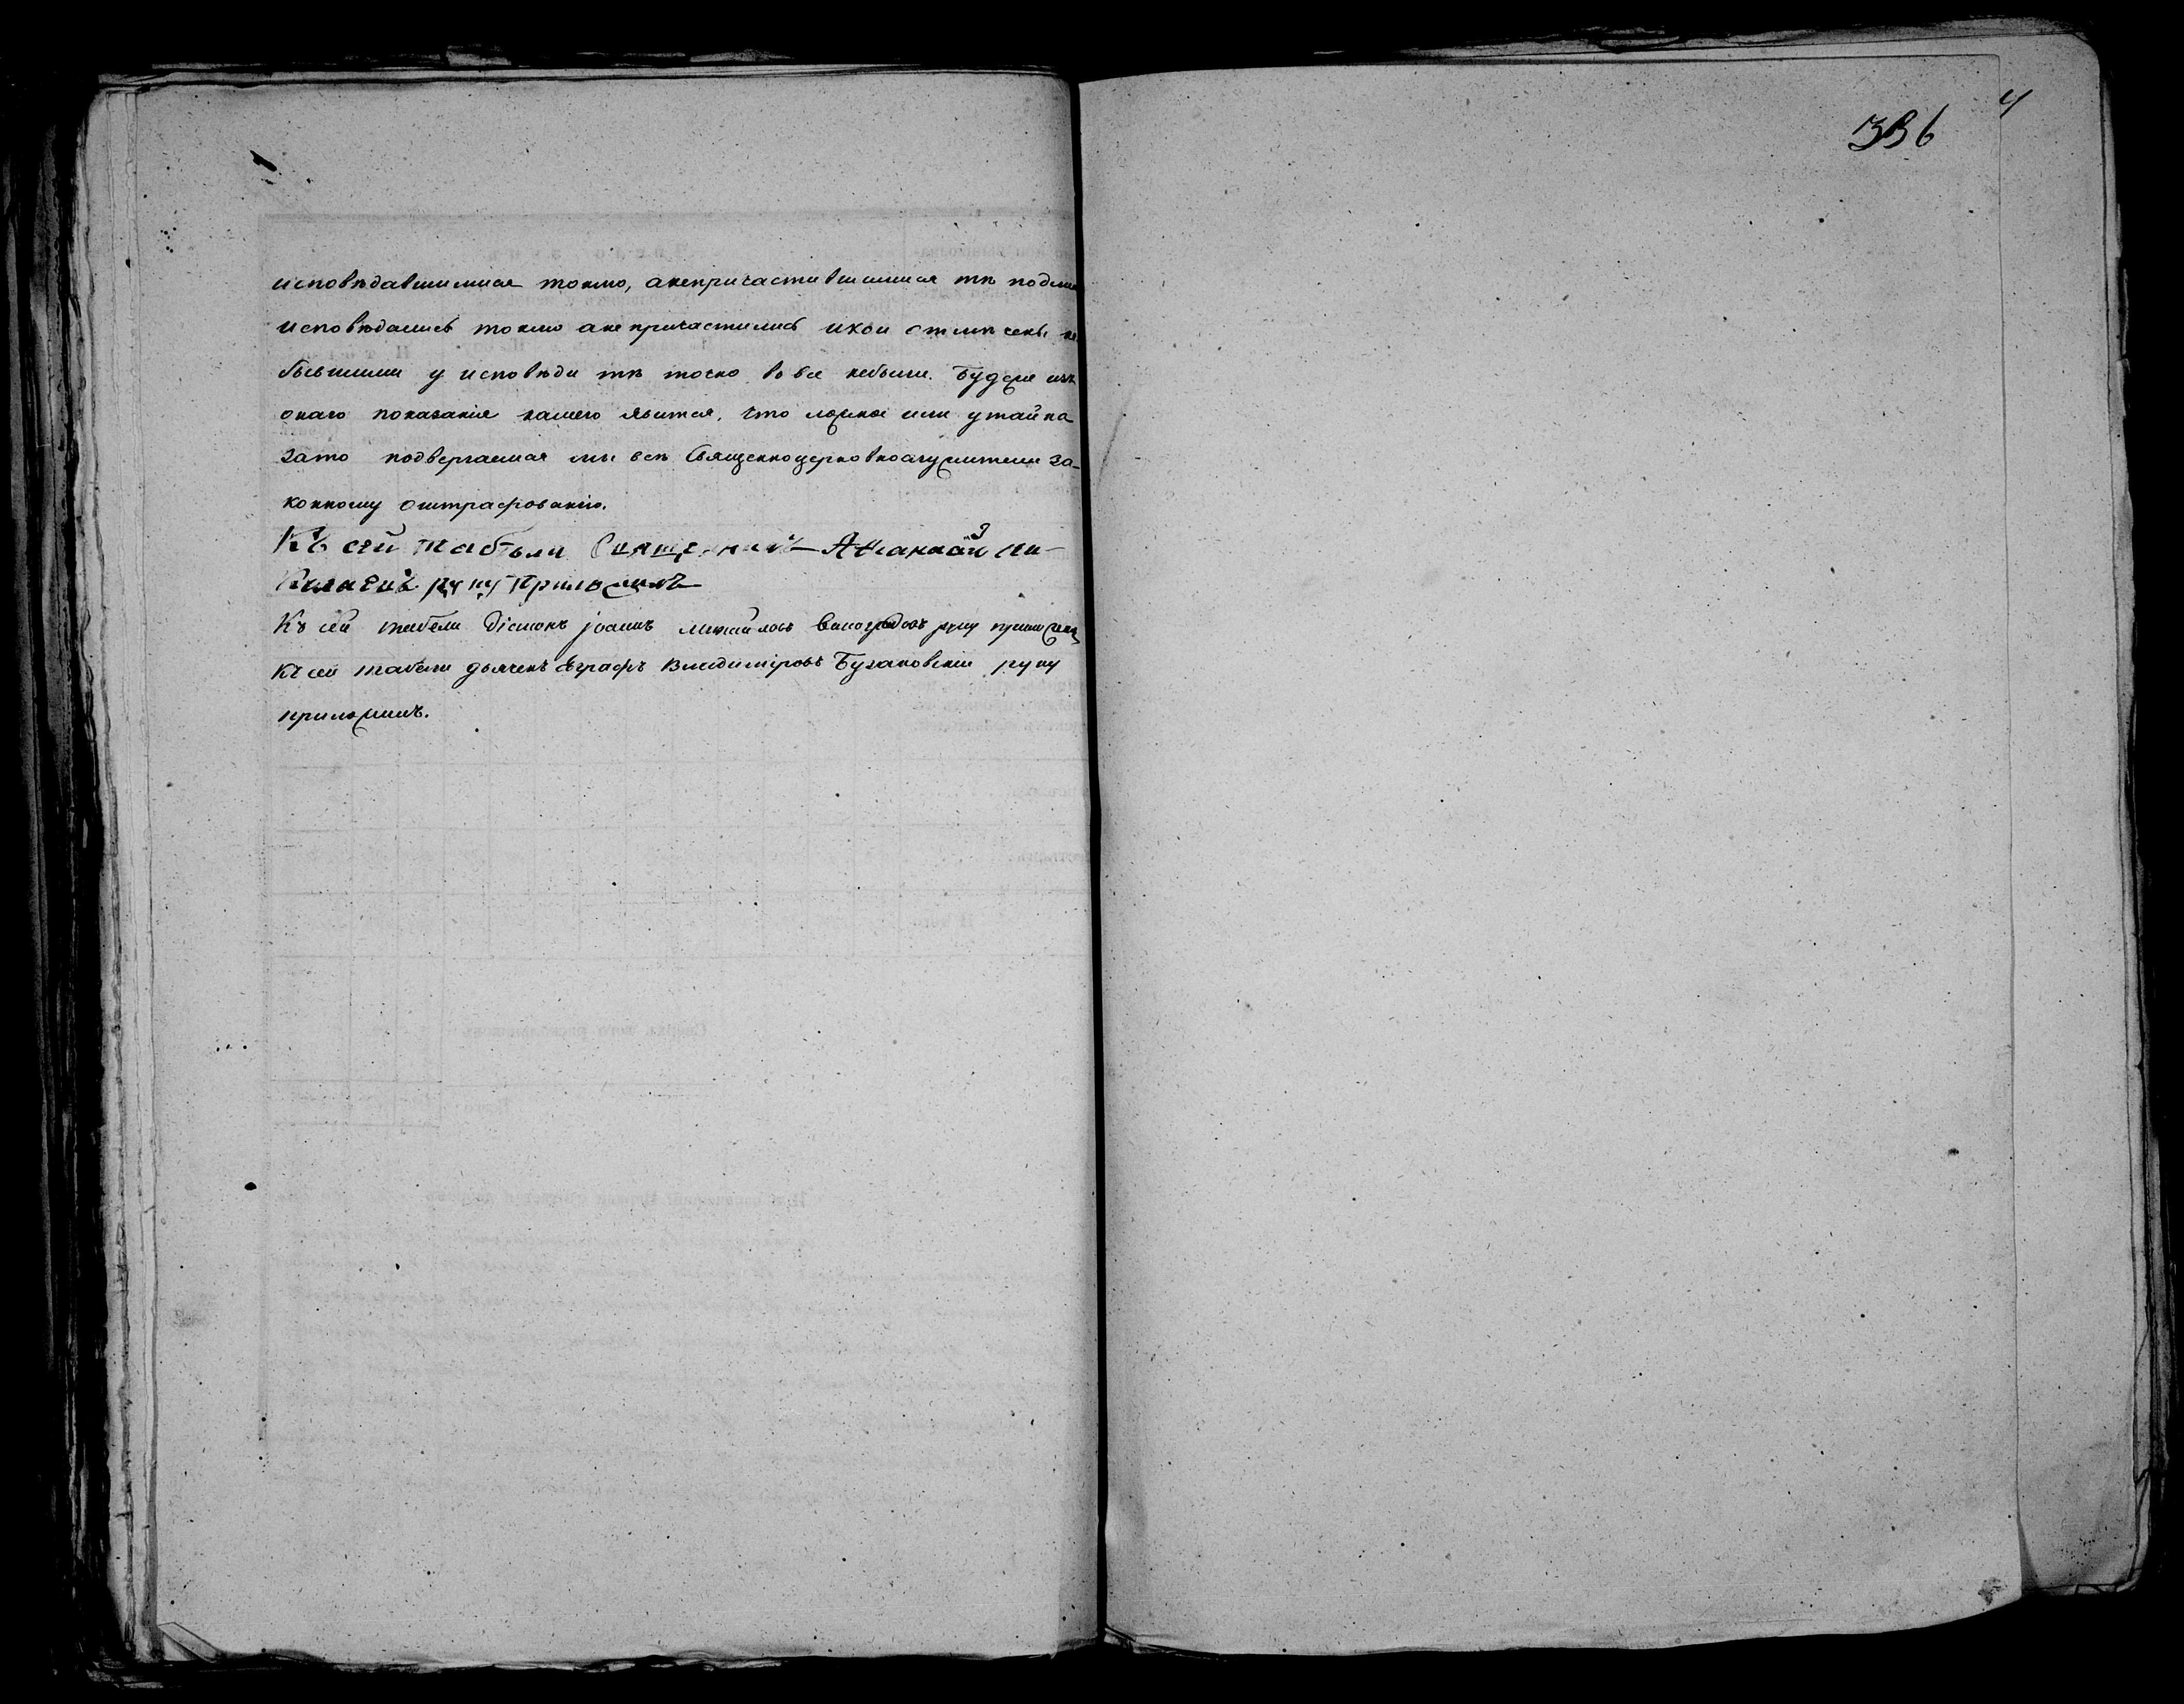 исповѣдавшимися токмо, анепричастившимися тѣ подли
исповѣдались токмо анепричастились икои отмѣчены не
бывшими у исповѣди тѣ точно вовсе небыли. Буде же изъ
онаго показанія нашего явится, что ложное или утайка
зато подвергаемся мы всѣ священноцерковнослужители за-
конному оштрафованію.
Къ сей табѣли Священникъ Аѳанасій Ни-
руку приложилъ
Къ сей табели діаконъ іоаннъ михайловъ Виноградовъ руку приложилъ
Къ сей табели дьячекъ Евграфъ Владиміровъ Бузановскій руку
приложилъ.
4
336